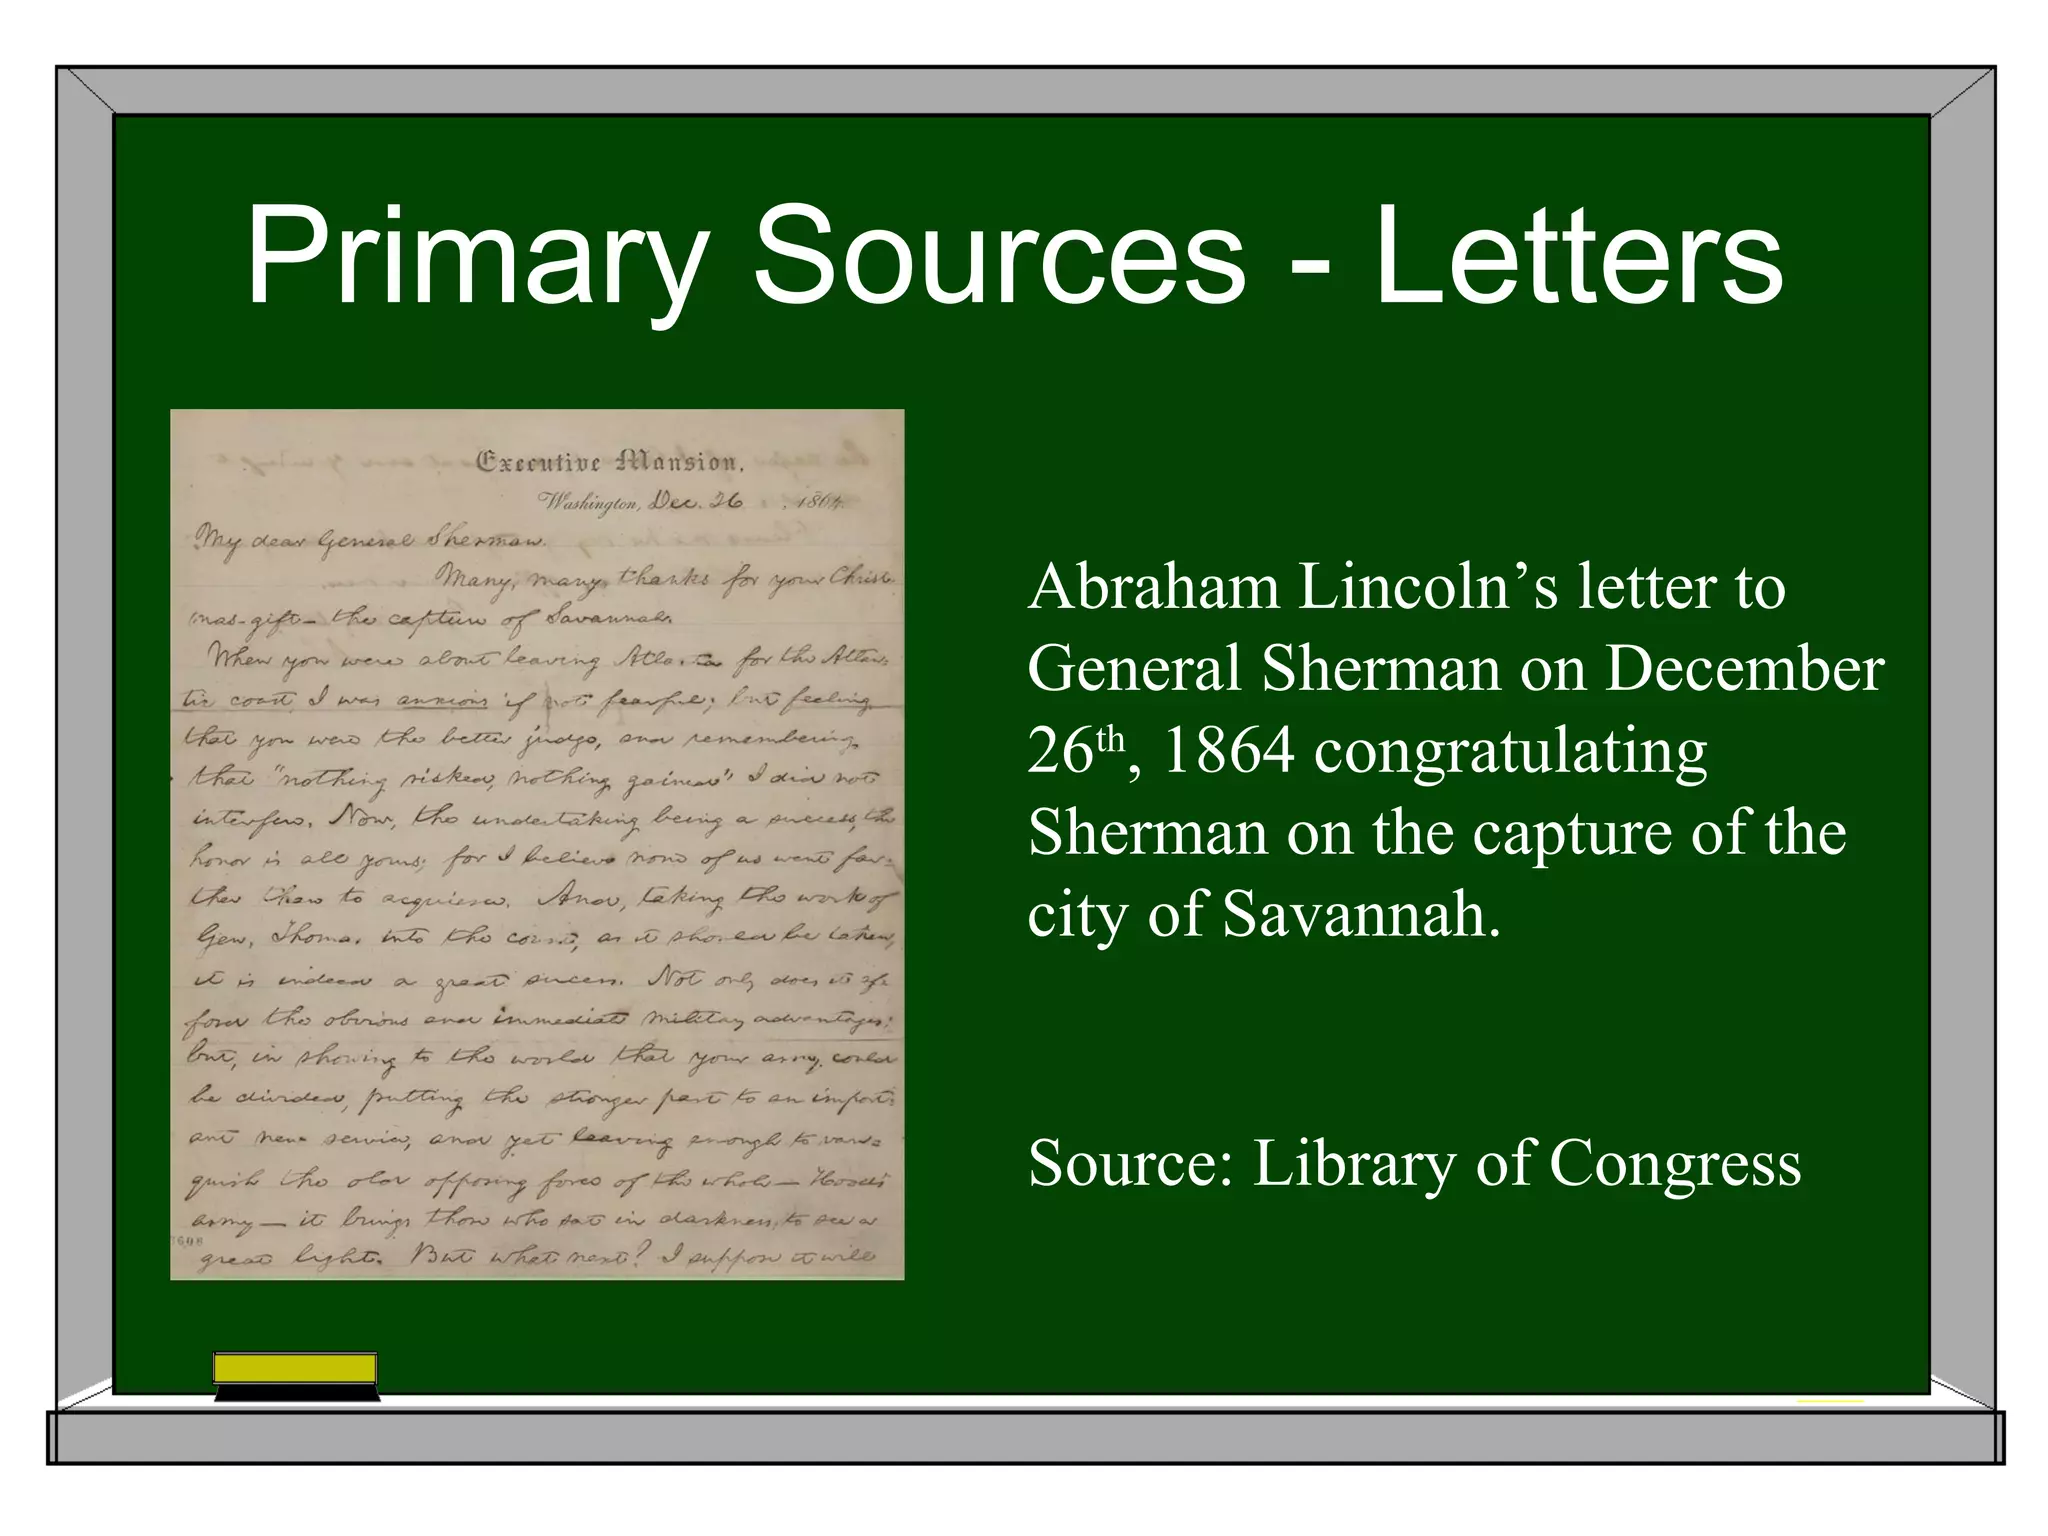 Primary Sources - Letters
Executive Mansion,
Washington, Dec. 26, 1864.
My dear General Sherman.
Many, many, thanks for your Christ-
mas-gift – the capture of Savannah.
When you were about leaving Atlanta for the Atlan-
tic coast, I was anxious, if not fearful; but feeling
that you were the better judge, and remembering
that "nothing risked, nothing gained" I did not
interfere. Now, the undertaking being a success, the
honor is all yours; for I believe none of us went far-
ther than to acquiesce. And, taking the work of
Gen. Thomas into the count, as it should be taken,
it is indeed a great success. Not only does it af-
ford the obvious and immediate military advantages;
but, in showing to the world that your army could
be divided, putting the stronger part to an import-
ant new service, and yet leaving enough to van-
quish the old opposing force of the whole – Hood's
army – it brings those who sat in darkness, to see a
great light. But what next? I suppose it will
Abraham Lincoln’s letter to
General Sherman on December
26th, 1864 congratulating
Sherman on the capture of the
city of Savannah.
Source: Library of Congress